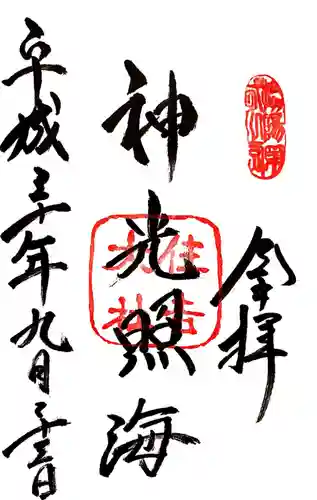 奉拝
神光照海
住吉
大社
平成三十年九月二十三日